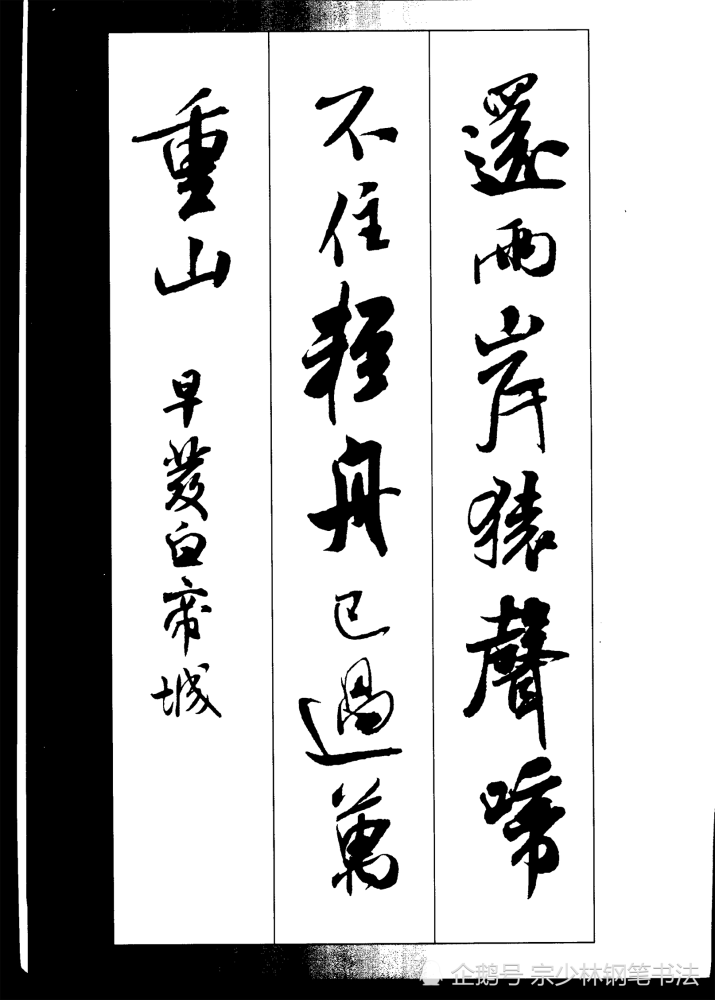 還兩岸猿聲啼
不住輕舟已過萬
重山
早發白帝城
企鹅号 宗少林钢笔书法